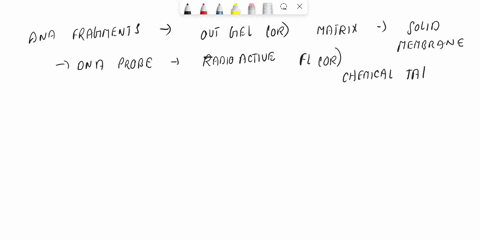 DNA FRAGMENTS → OUT GEL (OR) MATRIX → SOLID
MEMBRANE
→ DNA PROBE → RADIOACTIVE FL (OR)
CHEMICAL TAI